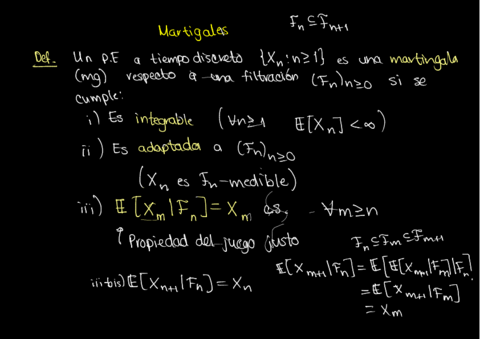 Martigales
F_n ⊆ F_{n+1}
Def. Un P.E a tiempo discreto {X_n : n≥1} es una martingala
(mg) respecto a una filtración (F_n)_{n≥0} si se
cumple:
i) Es integrable (∀n≥1 𝔼[X_n] < ∞)
ii) Es adaptada a (F_n)_{n≥0}
(X_n es F_n-medible)
iii) 𝔼[X_m | F_n] = X_m cs, ∀m≥n
↑ Propiedad del juego justo
F_n ⊆ F_m ⊆ F_{m+1}
iii-bis) 𝔼[X_{n+1} | F_n] = X_n
𝔼[X_{m+1} | F_n] = 𝔼[𝔼[X_{m+1} | F_m] | F_n]
= 𝔼[X_{m+1} | F_m]
= X_m